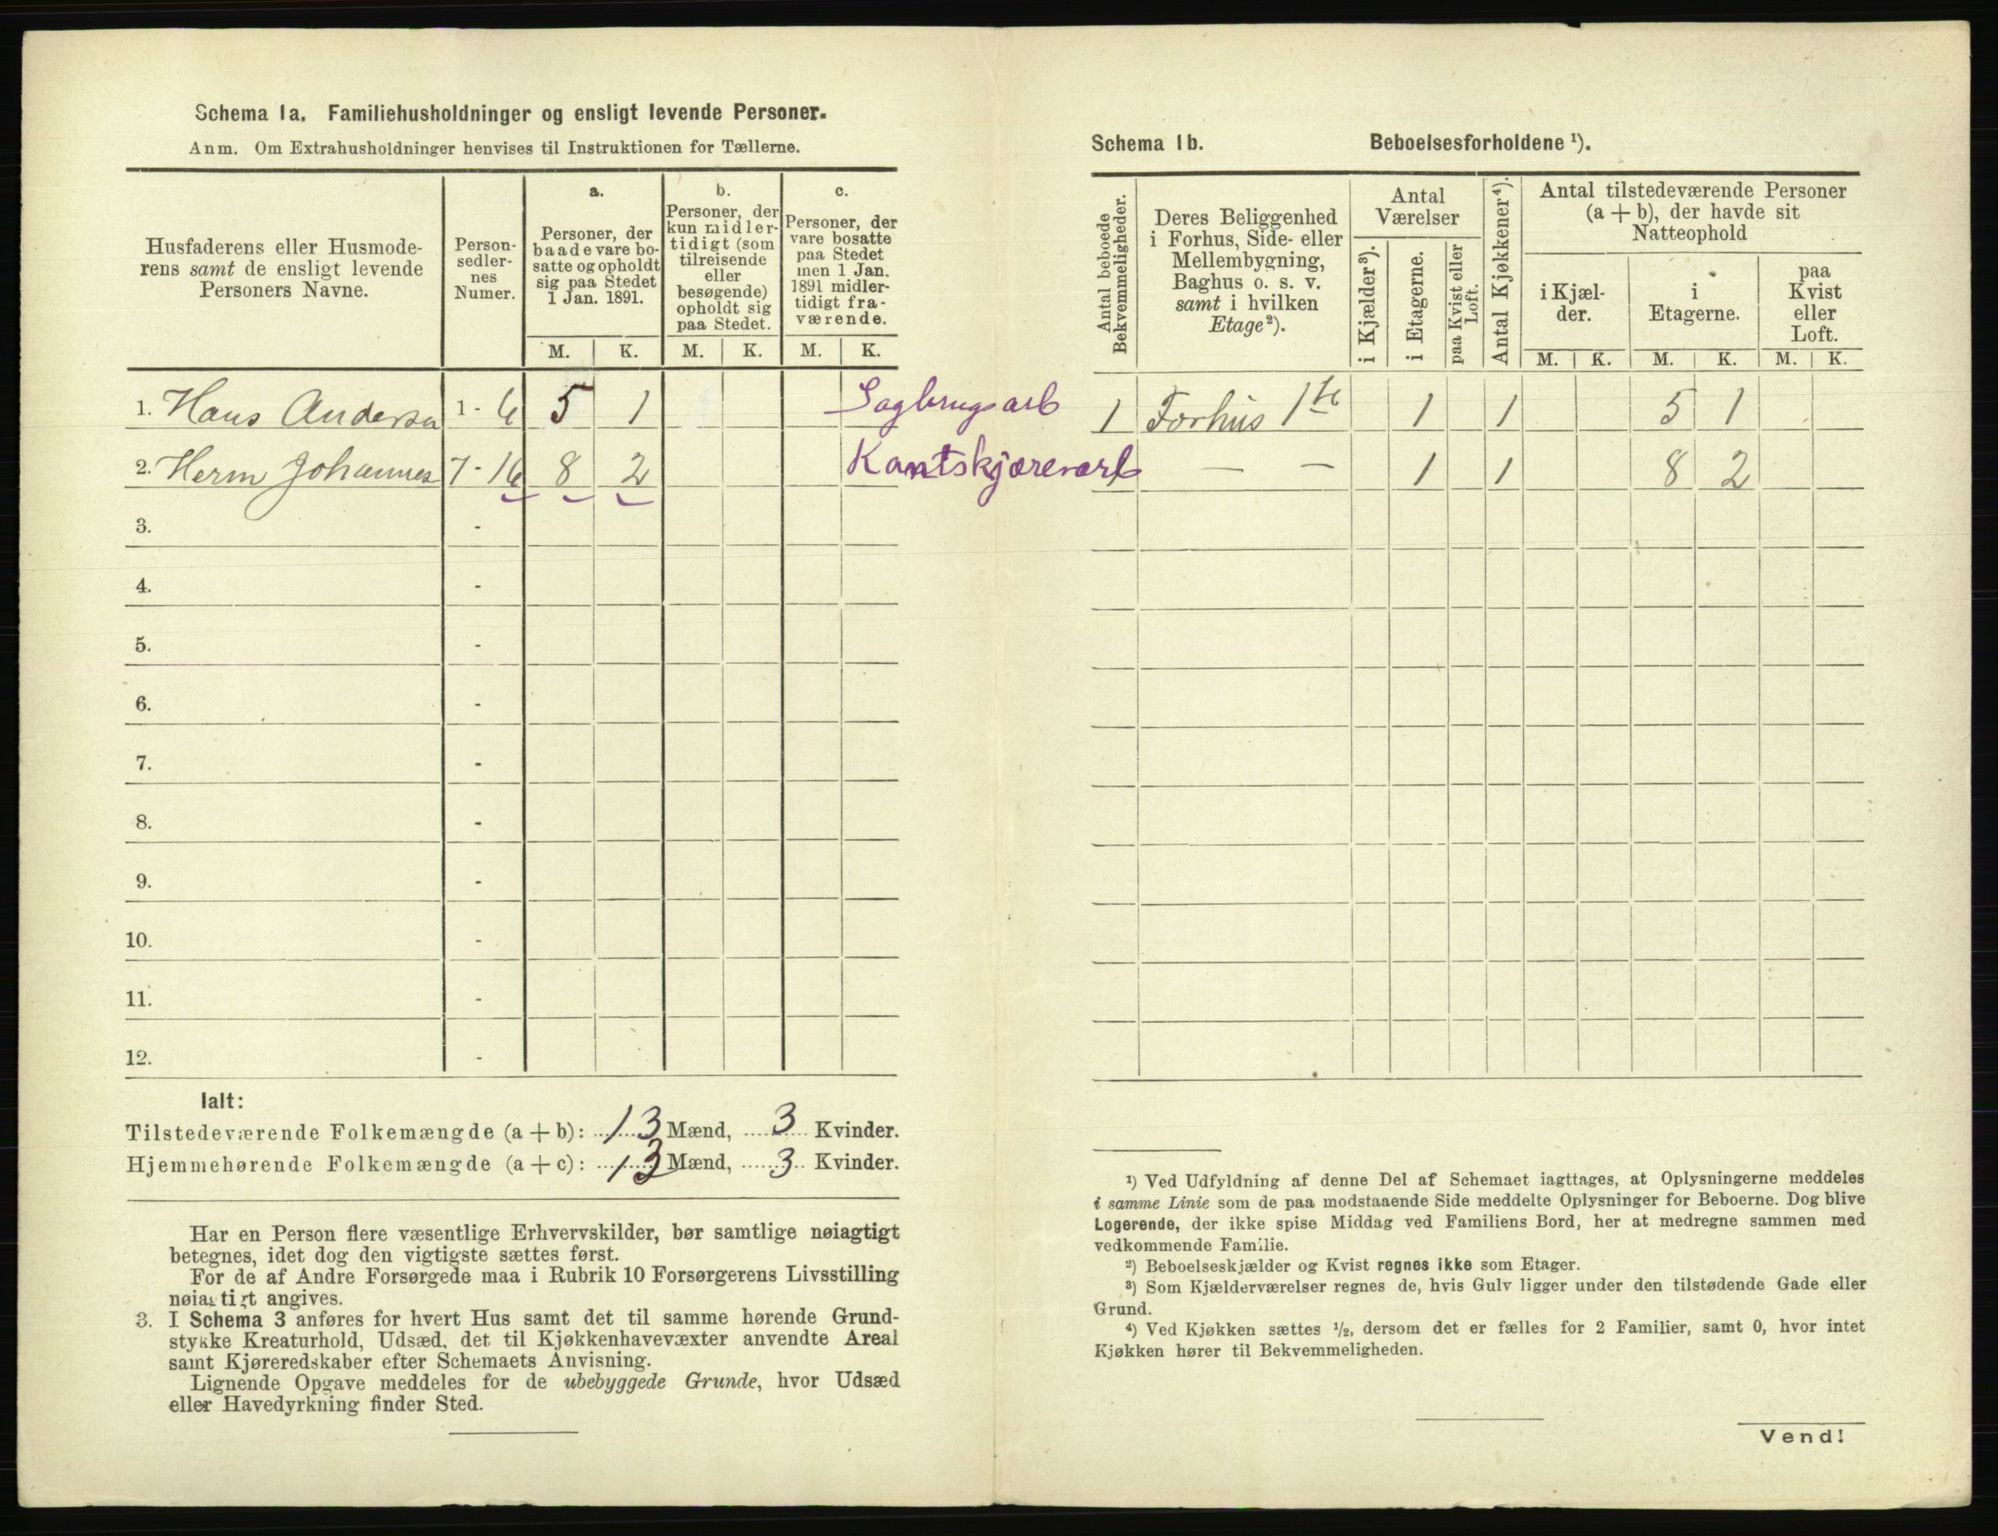 Schema 1a. Familiehusholdninger og ensligt levende Personer.
Anm. Om Extrahusholdninger henvises til Instruktionen for Tællerne.
Husfaderens eller Husmode-
rens samt de ensligt levende
Personers Navne.
Person-
sedler-
nes
Numer.
a.
Personer, der
baade vare bo-
satte og opholdt
sig paa Stedet
1 Jan. 1891.
b.
Personer, der
kun midler-
tidigt (som
tilreisende
eller
besøgende)
opholdt sig
paa Stedet.
c.
Personer, der
vare bosatte
paa Stedet
men 1 Jan.
1891 midler-
tidigt fra-
værende.
M. K. M. K. M. K.
1. Hans Andersen 1 - 6 5 1 Sagbrugsarb
2. Herm Johannes 7 - 16 8 2 Kantskjærerarb
3. -
4. -
5. -
6. -
7. -
8. -
9. -
10. -
11. -
12. -
Ialt:
Tilstedeværende Folkemængde (a + b): 13 Mænd, 3 Kvinder.
Hjemmehørende Folkemængde (a + c): 13 Mænd, 3 Kvinder.
Har en Person flere væsentlige Erhvervskilder, bør samtlige nøiagtigt
betegnes, idet dog den vigtigste sættes først.
For de af Andre Forsørgede maa i Rubrik 10 Forsørgerens Livsstilling
nøiagtigt angives.
3. I Schema 3 anføres for hvert Hus samt det til samme hørende Grund-
stykke Kreaturhold, Udsæd, det til Kjøkkenhavevæxter anvendte Areal
samt Kjøreredskaber efter Schemaets Anvisning.
Lignende Opgave meddeles for de ubebyggede Grunde, hvor Udsæd
eller Havedyrkning finder Sted.
Schema 1b. Beboelsesforholdene ¹).
Antal beboede
Bekvemmeligheder.
Deres Beliggenhed
i Forhus, Side- eller
Mellembygning,
Baghus o. s. v.
samt i hvilken
Etage²).
Antal
Værelser
i Kjælder³).
i Etagerne.
paa Kvist eller
Loft.
Antal Kjøkkener⁴).
Antal tilstedeværende Personer
(a + b), der havde sit
Natteophold
i Kjæl-
der.
i
Etagerne.
paa
Kvist
eller
Loft.
M. K. M. K. M. K.
1 Forhus 1te 1 1 5 1
— — 1 1 8 2
¹) Ved Udfyldning af denne Del af Schemaet iagttages, at Oplysningerne meddeles
i samme Linie som de paa modstaaende Side meddelte Oplysninger for Beboerne. Dog blive
Logerende, der ikke spise Middag ved Familiens Bord, her at medregne sammen med
vedkommende Familie.
²) Beboelseskjælder og Kvist regnes ikke som Etager.
³) Som Kjælderværelser regnes de, hvis Gulv ligger under den tilstødende Gade eller
Grund.
⁴) Ved Kjøkken sættes ½, dersom det er fælles for 2 Familier, samt 0, hvor intet
Kjøkken hører til Bekvemmeligheden.
Vend!